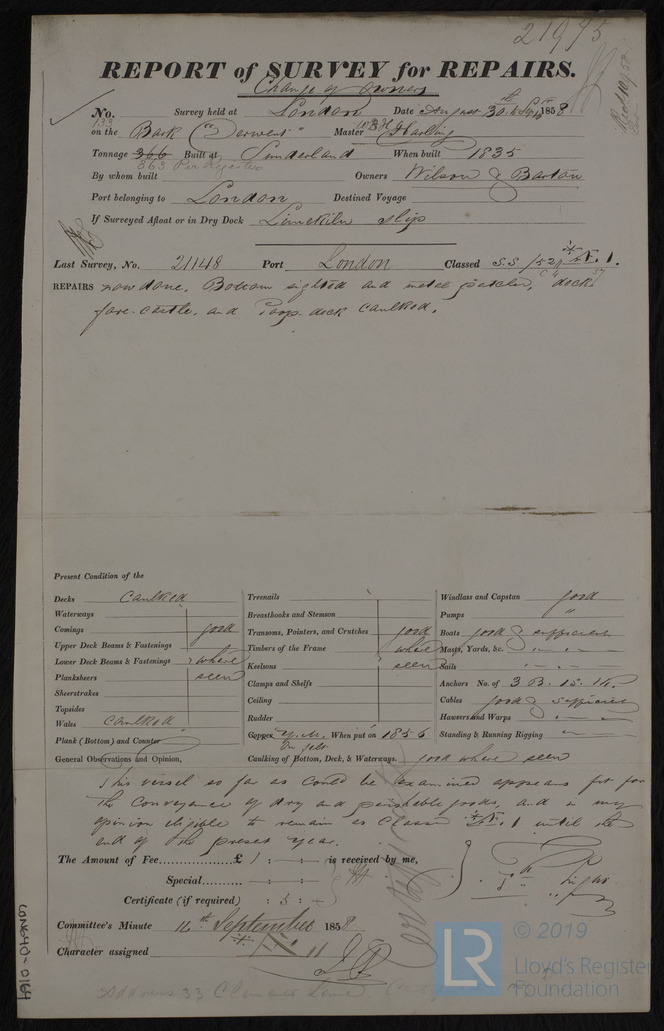 21975
REPORT of SURVEY for REPAIRS.
Change of Owners
No. 133 Survey held at London Date August 30th & Sept 1858
on the Bark "Derwent" Master Harling
Tonnage 366 Built at Sunderland When built 1835
363 Per Register
By whom built Owners Wilson & Barton
Port belonging to London Destined Voyage
If Surveyed Afloat or in Dry Dock Limekiln slip
Last Survey, No. 21148 Port London Classed S.S /52
REPAIRS now done, Bottom sighted and metal patched, deck
fore-castle, and Poop deck caulked.
Present Condition of the
Decks caulked
Waterways
Comings good
Upper Deck Beams & Fastenings
Lower Deck Beams & Fastenings where
Planksheers seen
Sheerstrakes
Topsides
Wales caulked
Plank (Bottom) and Counter
Treenails
Breasthooks and Stemson
Transoms, Pointers, and Crutches good
Timbers of the Frame where
Keelsons seen
Clamps and Shelfs
Ceiling
Rudder
Copper Y.M. When put on 1856
On felt
Caulking of Bottom, Deck, & Waterways. good where seen
Windlass and Capstan good
Pumps "
Boats good & sufficient
Masts, Yards, &c. " "
Sails " "
Anchors No. of 3 B. 1S. 1K.
Cables good & sufficient
Hawsers and Warps " "
Standing & Running Rigging " "
General Observations and Opinion,
This vessel so far as could be examined appears fit for
the conveyance of dry and perishable goods, and in my
opinion eligible to remain as Classed Æ.1 until the
end of the present year.
The Amount of Fee £ 1 : - : - is received by me,
Special : - : -
Certificate (if required) : 5 : -
Committee's Minute 16th September 1858
Character assigned Æ 1
LON640-0164
© 2019
LR
Lloyd's Register
Foundation